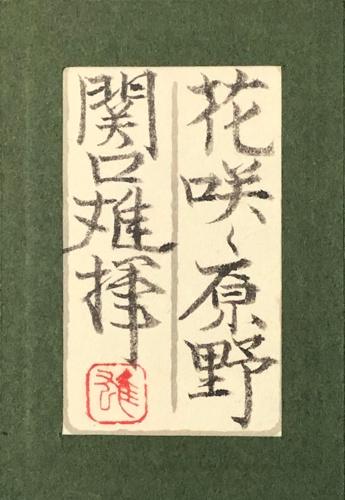 花咲く原野
関口雄揮
雄